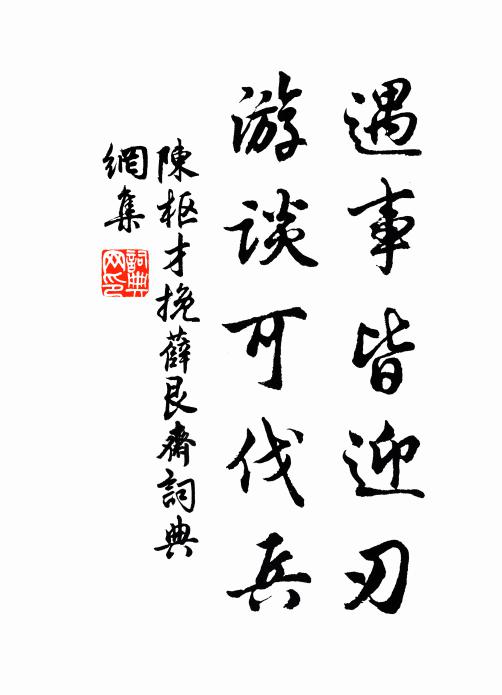 遇事皆迎刃
游谈可伐兵
陳枢才挽薛艮齋詞典
網集
詞典
网印